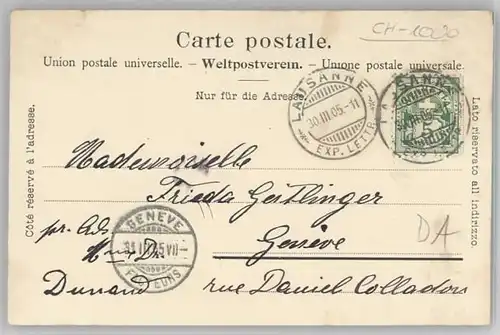 CH-1020
Carte postale.
Union postale universelle. - Weltpostverein. - Unione postale universale.
Nur für die Adresse.
LAUSANNE
30.III.05.-11
EXP. LETTR.
LAUSANNE
5
Côté réservé à l'adresse.
Lato riservato all indirizzo.
Mademoiselle
Frieda Geitlinger
GENÈVE
FACTEURS
pr. Ad.
Genève
DA
Dunand rue Daniel Colladon